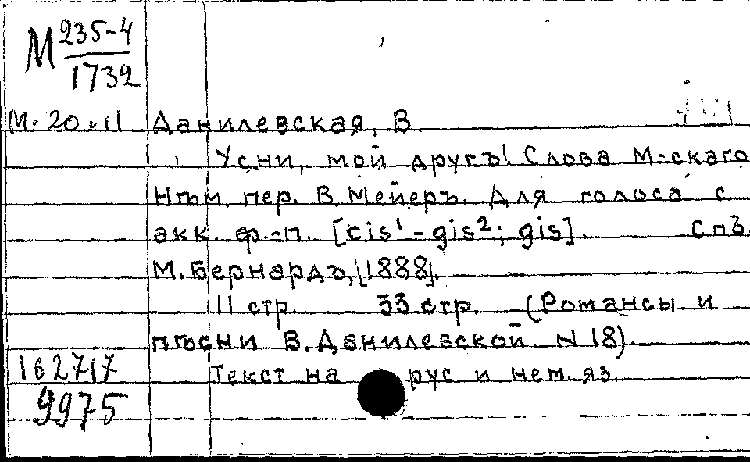 М 235-4
1732
М.20.II Данилевская, В
Усни, мой другъ! Слова М-скаго
Нѣм. пер. В. Мейеръ. Для голоса с
акк. ф.-п. [cis¹-gis²; gis]. Спб.
М. Бернардъ, [1888].
II стр. 33 стр. (Романсы и
пѣсни В. Данилевской N 18).
162717 Текст на рус и нем. яз.
9975